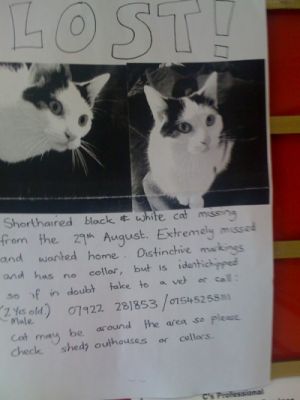 LOST!
Shorthaired black & white cat missing
from the 29th August. Extremely missed
and wanted home. Distinctive markings
and has no collar, but is identichipped
so if in doubt take to a vet or call:
(2 yrs old.) 07922 281853 /
Male
Cat may be around the area so please
check sheds outhouses or cellars.
C's Professional